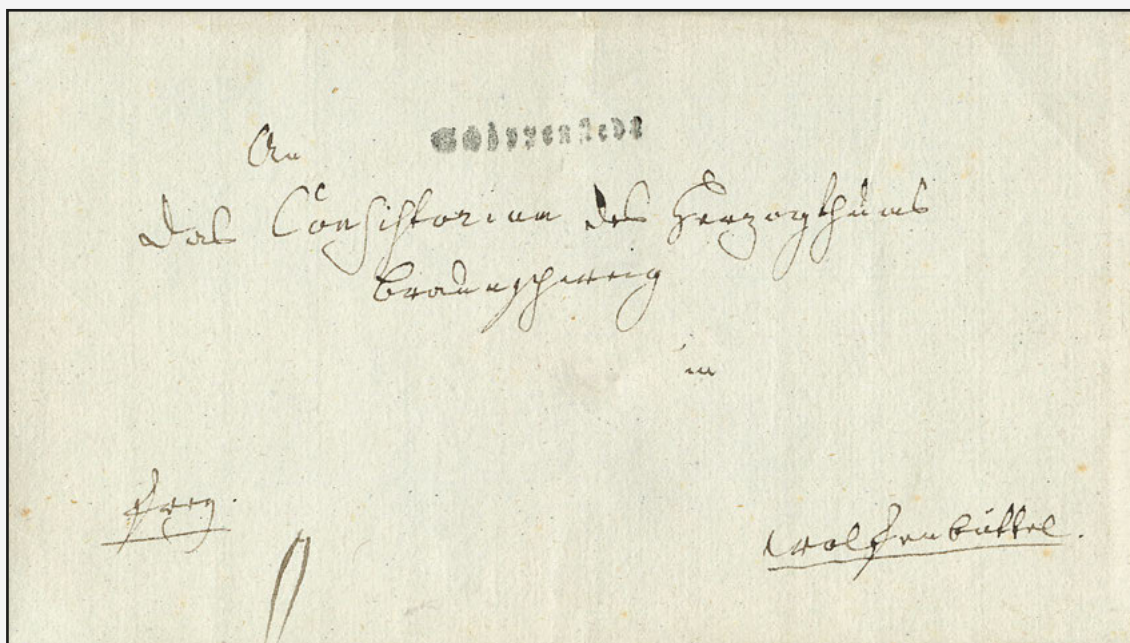 Schöppenstedt
An
das Consistorium des Herzogthums
Braunschweig
in
frey.
Wolfenbüttel.